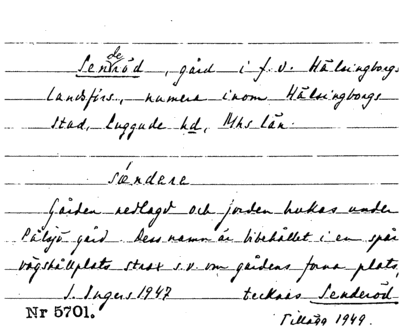 Senderöd, gård i f.v. Hälsingborgs
landsförs., numera inom Hälsingborgs
stad, Luggude hd, Mhs län.
sǿndare
Gården nedlagd och jorden brukas under
Pålsjö gård. Dess namn är bibehållet i en spår-
vägshållplats strax s.v. om gårdens forna plats,
S. Ingers 1947 tecknas Senderöd
Nr 5701. Tillägg 1949.